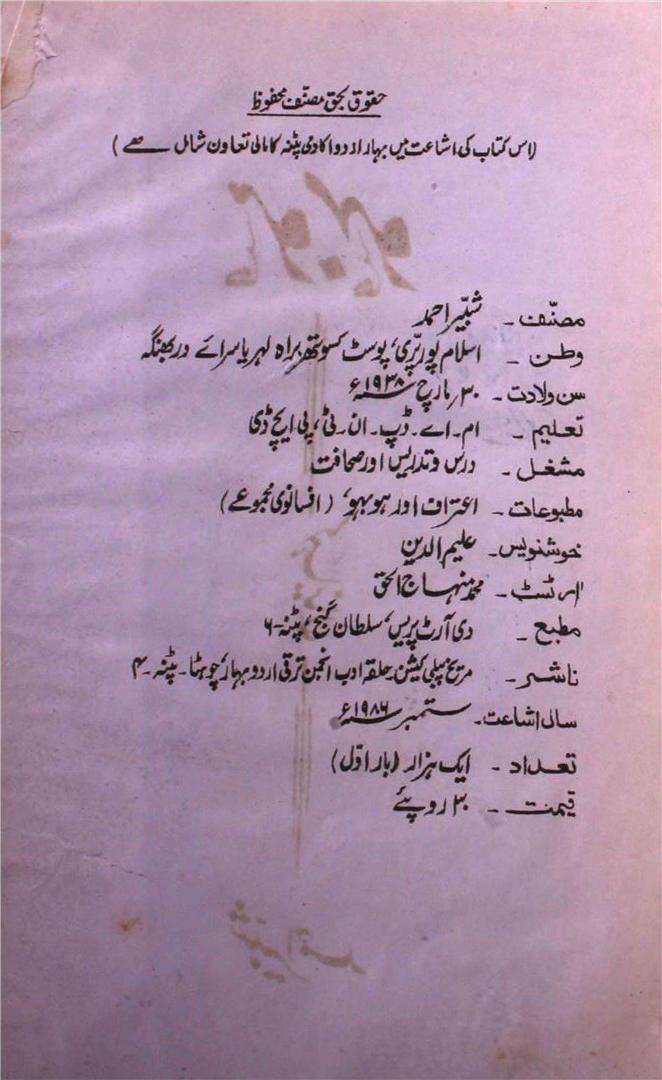 حقوق بحق مصنّف محفوظ
(اس کتاب کی اشاعت میں بہار اردو اکادمی پٹنہ کا مالی تعاون شامل ہے)
مصنّف - شبّیر احمد
وطن - اسلام پور پَرَی، پوسٹ کسوتھر براہ لہریا سرائے دربھنگہ
سن ولادت - ۳۰ مارچ ۱۹۳۸ء
تعلیم - ام - اے - ڈپ - ان - ٹی، پی ایچ ڈی
مشغل - درس و تدریس اور صحافت
مطبوعات - اعتراف اور ہو بہو، (افسانوی مجموعے)
خوشنویس - علیم الدین
آرٹسٹ - محمد منہاج الحق
مطبع - دی آرٹ پریس، سلطان گنج، پٹنہ - ۶
ناشر - مریخ پبلی کیشن حلقہ ادب انجمن ترقی اردو بہار، چوہٹا - پٹنہ - ۴
سال اشاعت - ستمبر ۱۹۸۶ء
تعداد - ایک ہزار (بار اوّل)
قیمت - ۳۰ روپئے
شبیر احمد